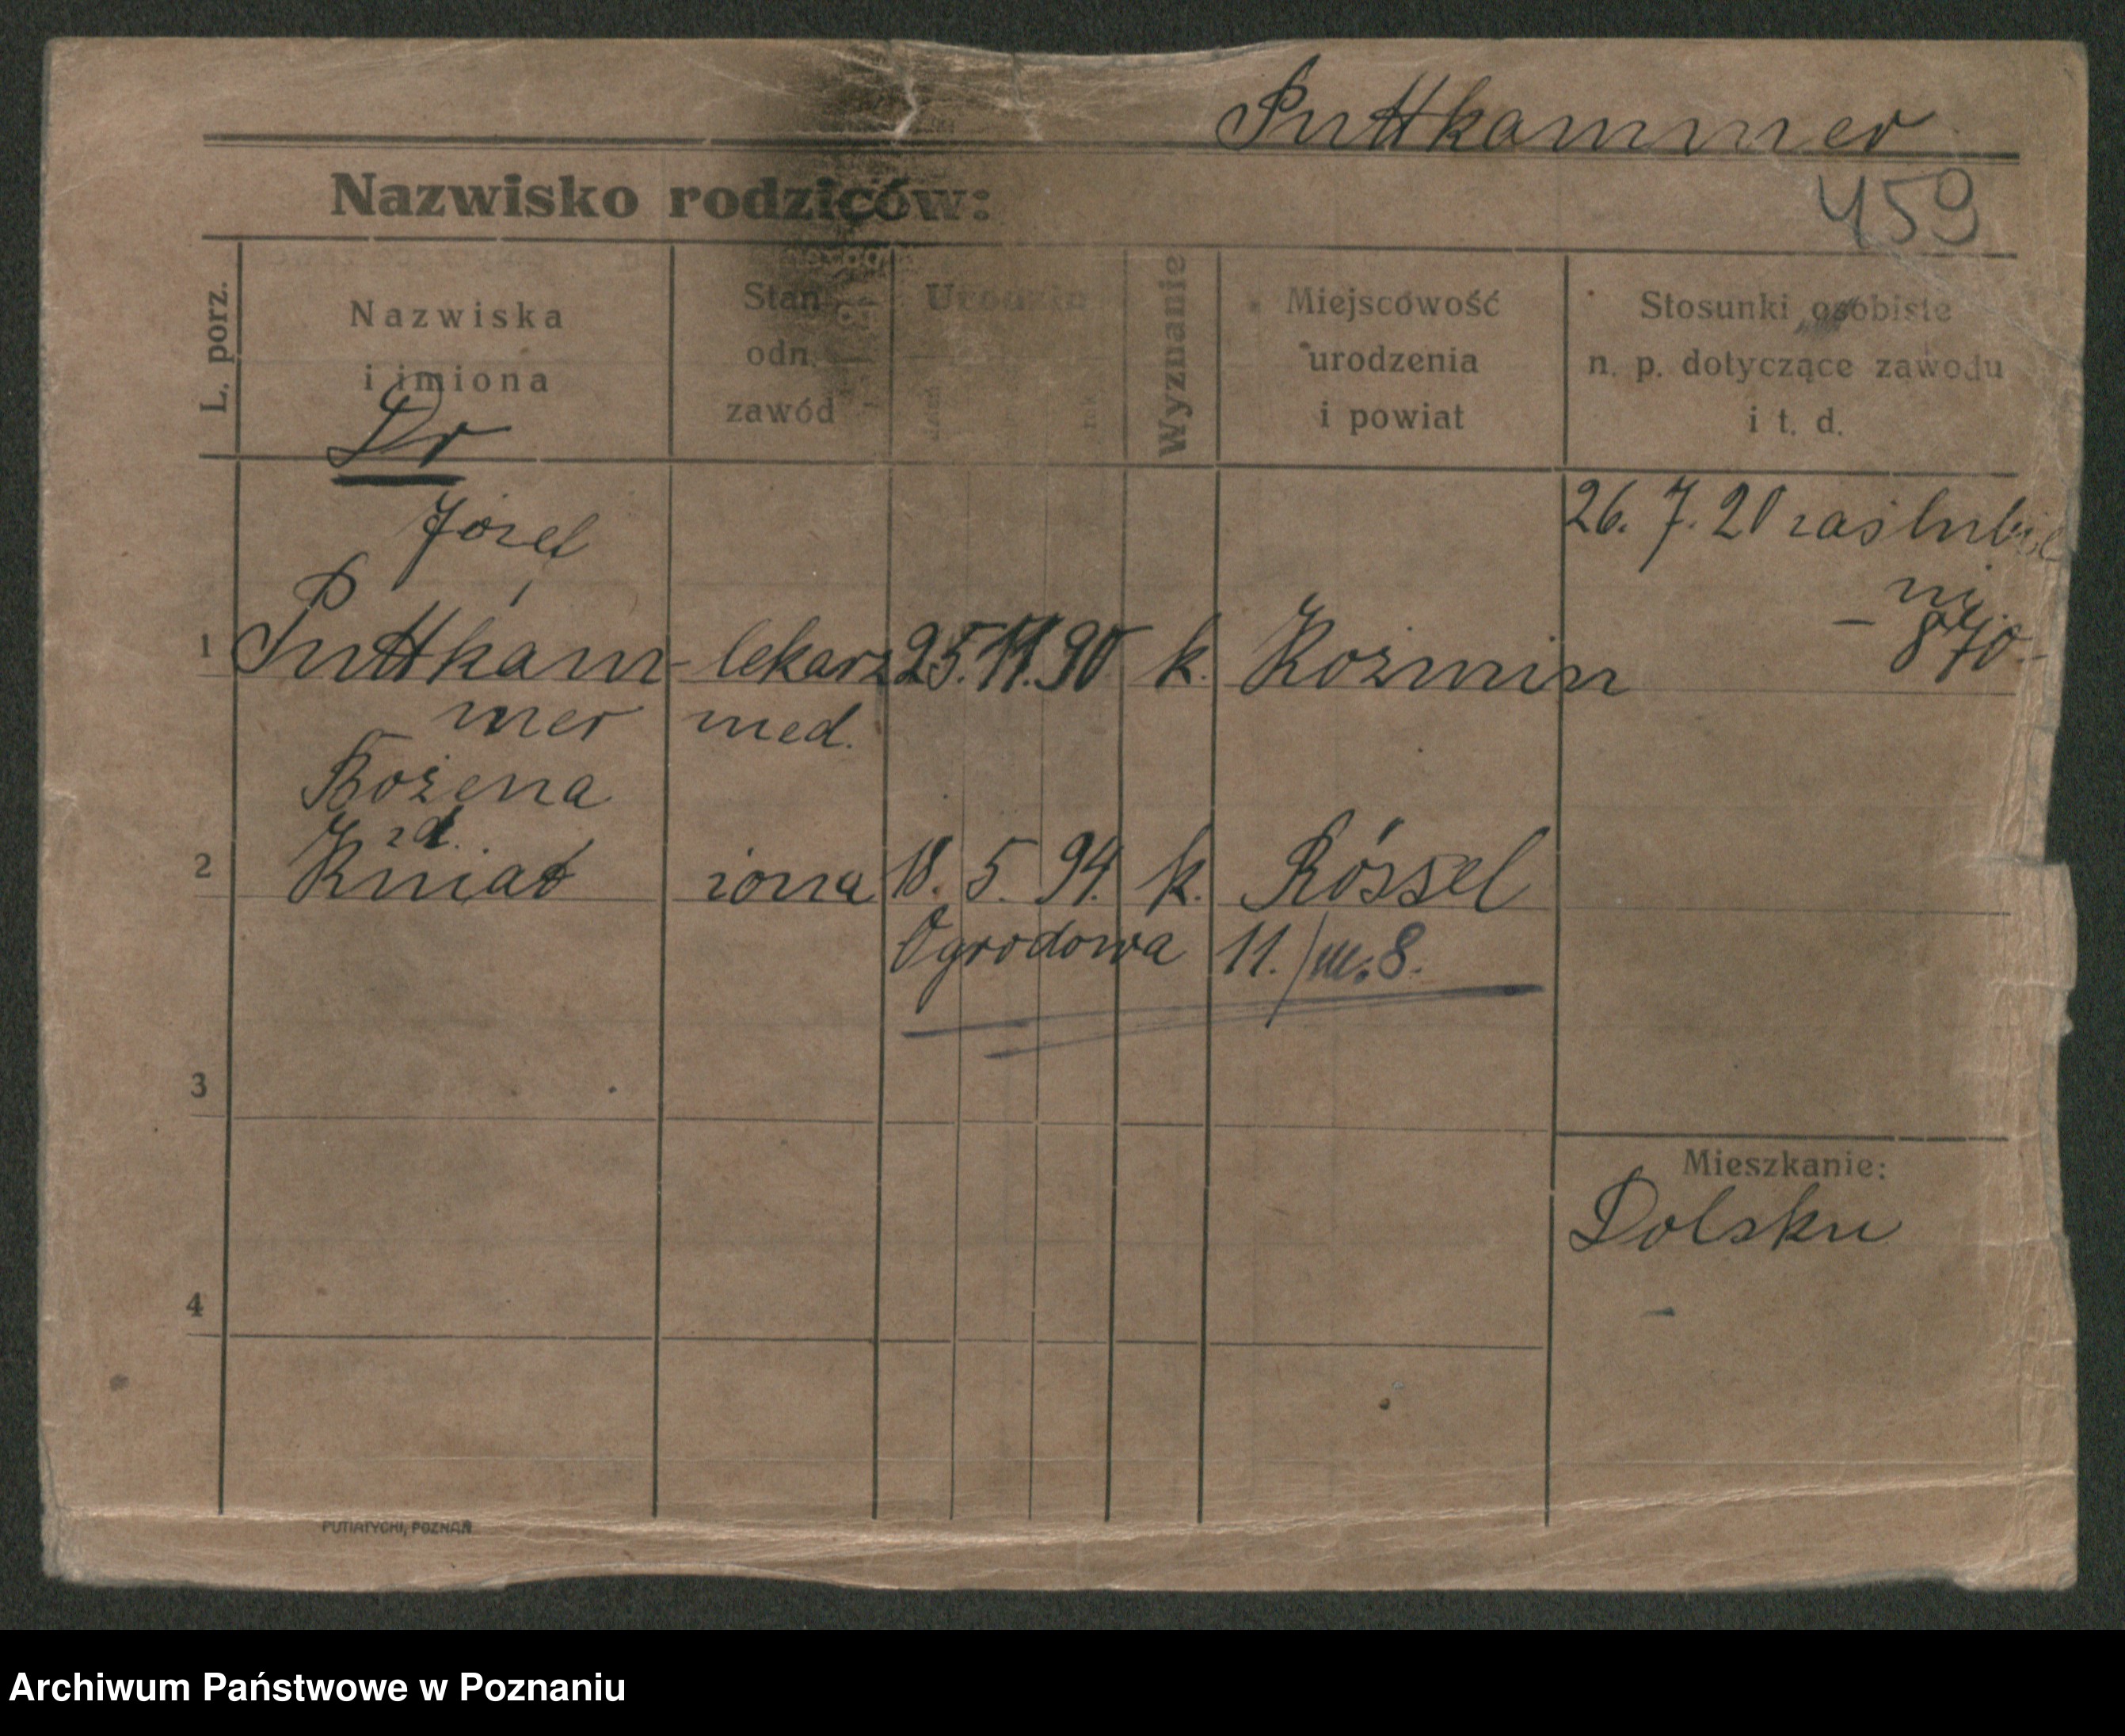 Puttkammer
Nazwisko rodziców:
459
L. porz.
Nazwiska
i imiona
Stan
odn.
zawód
Urodzin
Wyznanie
Miejscowość
urodzenia
i powiat
Stosunki osobiste
n. p. dotyczące zawodu
i t. d.
Dr
Józef
26. 7. 20 zaślubie
ni
1 Puttkam- lekarz 25. 11. 90 k. Kozmin
- 870.-
mer med.
Bożena
zd.
2 Kniat żona 18. 5. 94. k. Rössel
Ogrodowa 11./m. 8.
3
Mieszkanie:
Dolsku
4
PUTIATYCKI, POZNAŃ
Archiwum Państwowe w Poznaniu